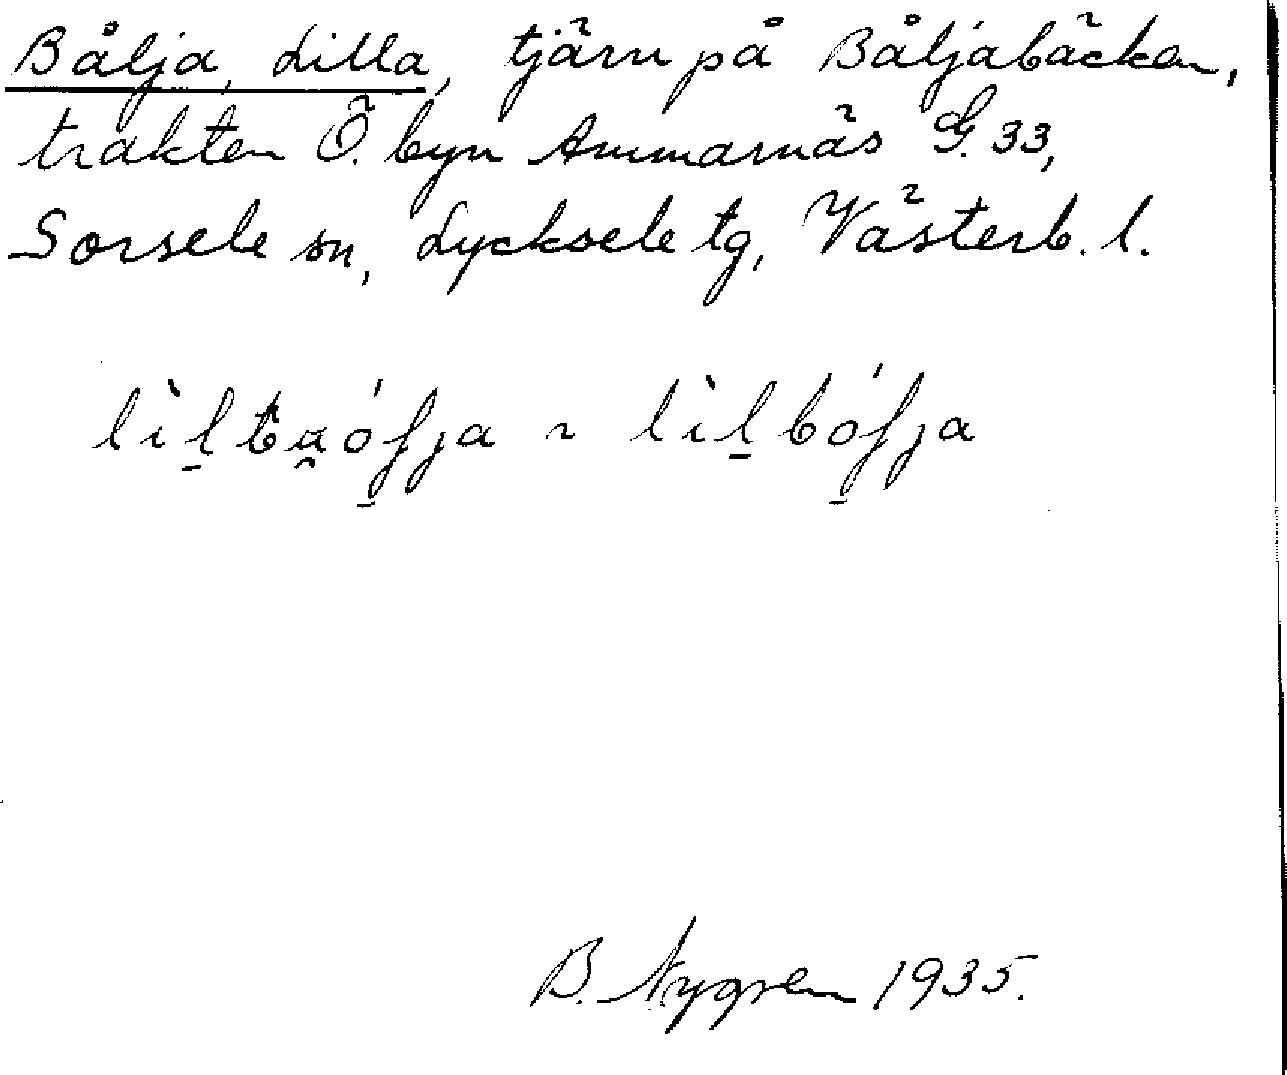 Bålja, Lilla, tjärn på Båljabäcken,
trakten Ö. byn Ammarnäs G. 33,
Sorsele sn, Lycksele tg, Västerb. l.
B. Nygren 1935.